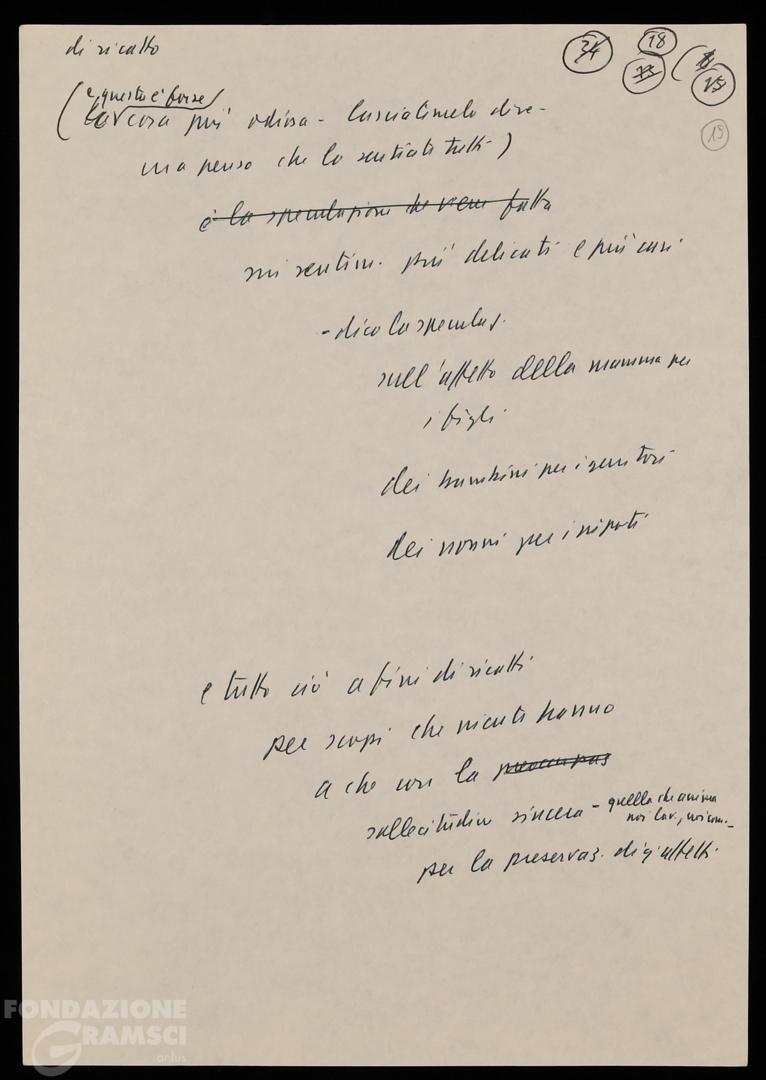 di ricatto
34 18 33 15
19
(e questo è forse
la cosa più odiosa - lasciatemelo dire -
ma penso che lo sentiate tutti -)
è la speculazione che viene fatta
sui sentim. più delicati e più cari
- dico la speculaz.
sull'affetto della mamma per
i figli
dei bambini per i genitori
dei nonni per i nipoti
e tutto ciò a fini di ricatti
per scopi che niente hanno
a che con la preoccupaz
sollecitudine sincera - quella che anima
noi lav., noi com. -
per la preservaz. di q. affetti.
FONDAZIONE
GRAMSCI
onlus